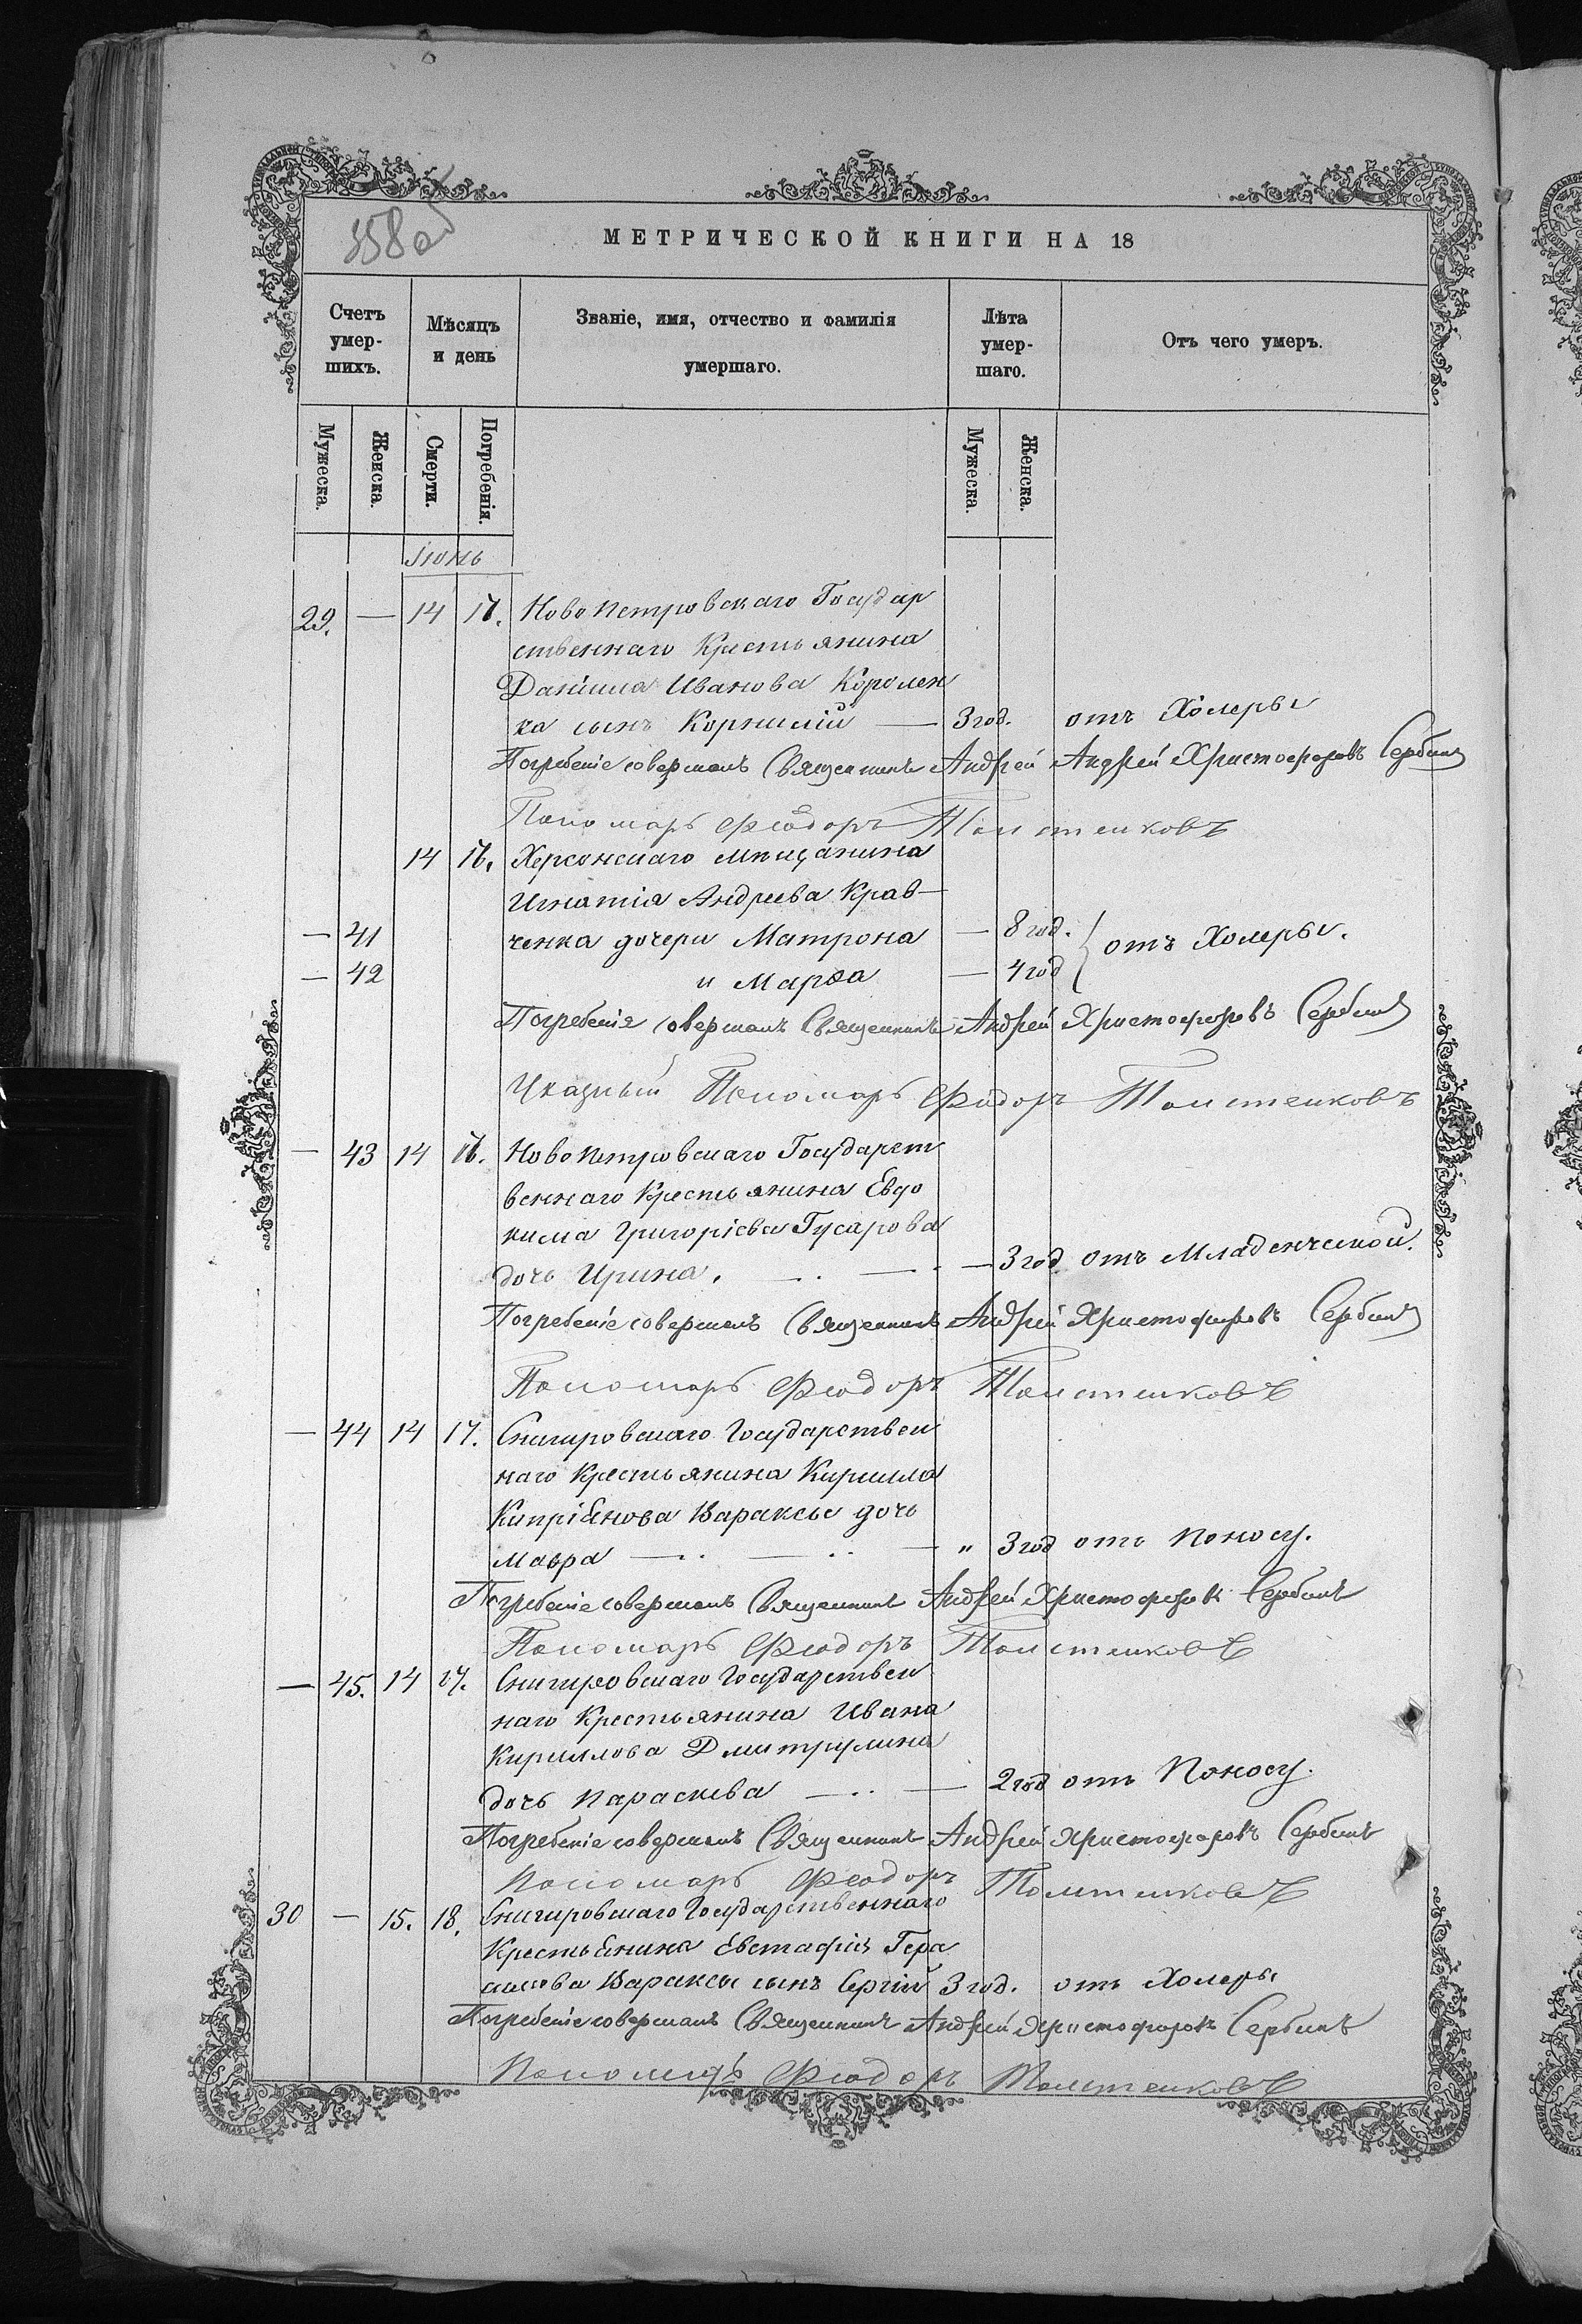 358 об
МЕТРИЧЕСКОЙ КНИГИ НА 18
Счетъ умер-шихъ.
Мѣсяцъ и день
Званіе, имя, отчество и фамилія умершаго.
Лѣта умер-шаго.
Отъ чего умеръ.
Мужеска.
Женска.
Смерти.
Погребенія.
Мужеска.
Женска.
Іюнь
29. — 14 17. Новопетровскаго Государ
ственнаго Крестьянина
Даніила Иванова Королен
ка сынъ Корнилій — 3 год. отъ Холеры
Погребеніе совершалъ Священникъ Андрей Андрей Христофоровъ Сербинъ
Пономарь Феодоръ Толстенковъ
14 16. Херсонскаго мѣщанина
Игнатія Андреева Крав-
— 41 ченка дочери Матрона — 8 год. отъ Холеры.
— 42 и Марѳа — 4 год
Погребенія совершалъ Священникъ Андрей Христофоровъ Сербинъ
Указный Пономарь Феодоръ Толстенковъ
— 43 14 16. Новопетровскаго Государст
веннаго Крестьянина Евдо
кима Григоріева Гусарова
дочь Ирина. — . . — . — 3 год отъ Младенческой.
Погребеніе совершалъ Священникъ Андрей Христофоровъ Сербинъ
Пономарь Феодоръ Толстенковъ
— 44 14 17. Снигировскаго Государствен
наго Крестьянина Кирилла
Кипріянова Вараксы дочь
Мавра — . . — . . — „ 3 год отъ поносу.
Погребеніе совершалъ Священникъ Андрей Христофоровъ Сербинъ
Пономарь Феодоръ Толстенковъ
— 45. 14 17. Снигировскаго Государствен
наго Крестьянина Ивана
Кириллова Дмитрулина
дочь Параскева — . . — 2 год отъ Поносу.
Погребеніе совершалъ Священникъ Андрей Христофоровъ Сербинъ
Пономарь Феодоръ Толстенковъ
30 — 15. 18. Снигировскаго Государственнаго
Крестьянина Евстафія Гера
симова Вараксы сынъ Сергій 3 год. отъ Холеры
Погребеніе совершалъ Священникъ Андрей Христофоровъ Сербинъ
Пономарь Феодоръ Толстенковъ